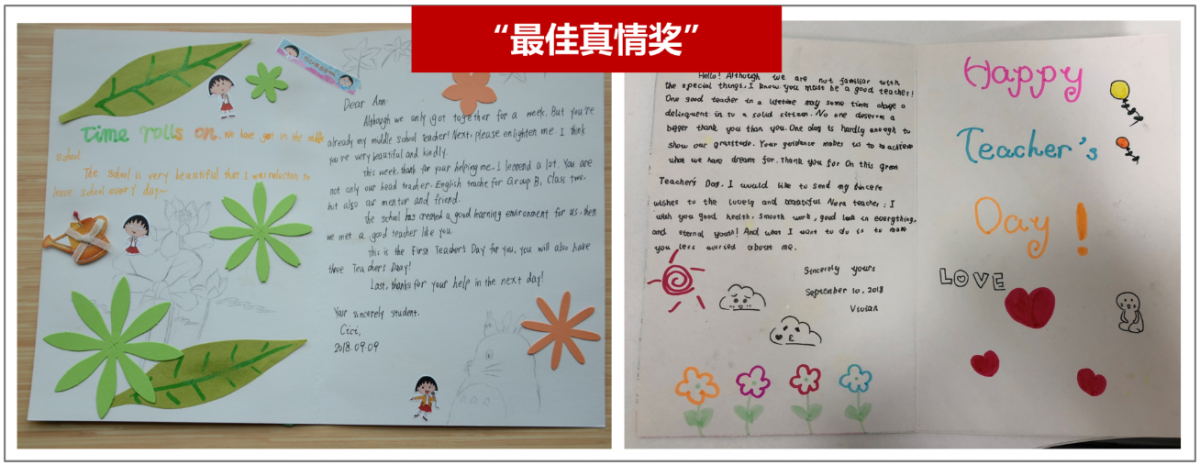 “最佳真情奖”
Time rolls on. We have year in the middle
school
The school is very beautiful that I was reluctant to
leave school every day~
Dear Ann
Although we only got together for a week. But you're
already my middle school teacher! Next, please enlighten me. I think
you're very beautiful and kindly.
this week, thank for your helping me. I learned a lot. You are
not only our head teacher. English teache for Group B, Class two.
but also our mentor and friend.
the school has created a good learning environment for us. then
we met a good teacher like you.
this is the First Teacher's Day for you, you will also have
three Teachers Daay!
Last, thanks for your help in the next day!
Your sincerely student.
Cici,
2018.09.09
Hello! Although we are not familiar with
the special things, I know you must be a good teacher!
One good teacher in a lifetime may some times change a
delinquent in to a solid citizen. No one deserves a
bigger thank you than you. One day is hardly enough to
show our gratitude. Your guidance makes us to achieve
what we have dream for. Thank you for On this great
Teacher's Day, I would like to send my sincere
wishes to the lovely and beautiful Nora teacher: I
wish you good health, smooth work, good luck in everything,
and eternal youth! And what I want to do is to make
you less worried about me.
Sincerely yours
September 10, 2018
Vivian
Happy
Teacher's
Day!
LOVE